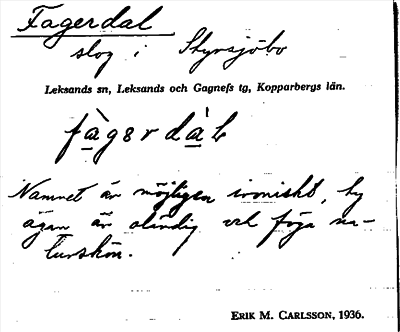 Fagerdal
slog i Styrsjöbo
Leksands sn, Leksands och Gagnefs tg, Kopparbergs län.
fàgərdàL
Namnet är möjligen ironiskt, ty
ägan är oländig och föga na-
turskön.
ERIK M. CARLSSON, 1936.